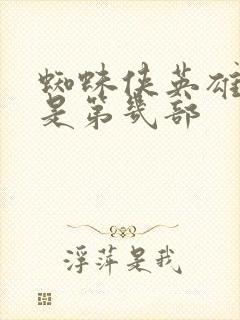 蜘蛛侠英雄
是第幾部
浮萍是我